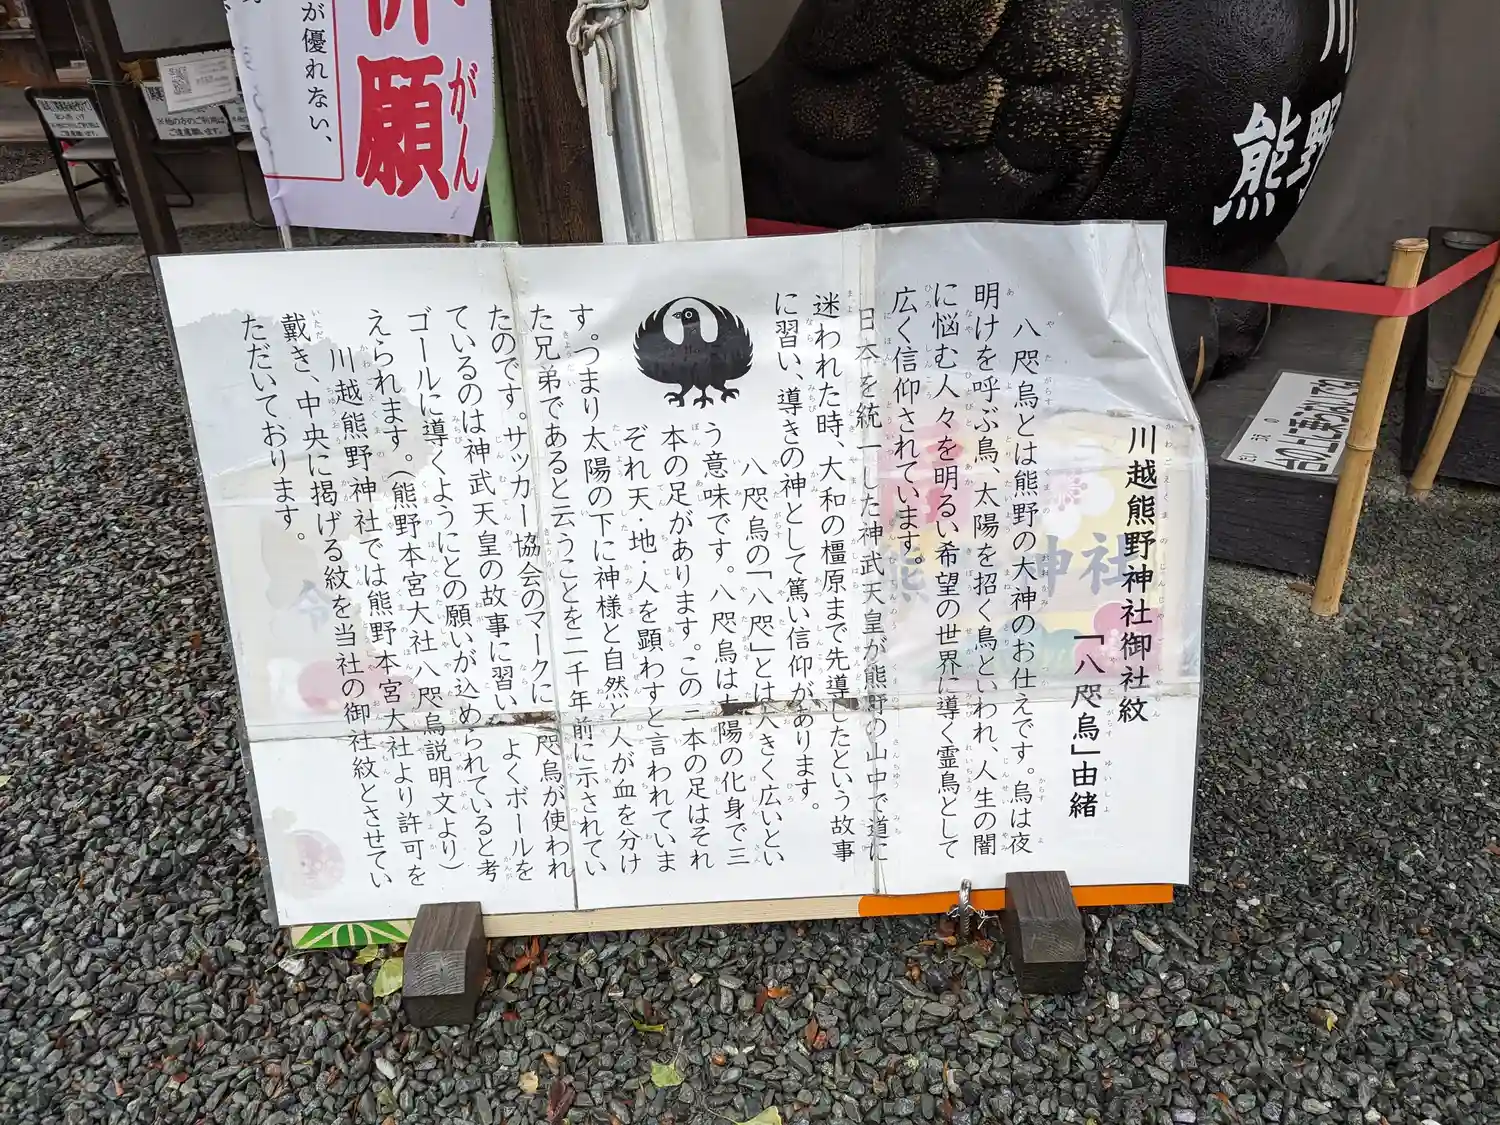 川越熊野神社御社紋
「八咫烏」由緒
八咫烏とは熊野の大神のお仕えです。烏は夜
明けを呼ぶ鳥、太陽を招く鳥といわれ、人生の闇
に悩む人々を明るい希望の世界に導く霊鳥として
広く信仰されています。
日本を統一した神武天皇が熊野の山中で道に
迷われた時、大和の橿原まで先導したという故事
に習い、導きの神として篤い信仰があります。
八咫烏の「八咫」とは大きく広いとい
う意味です。八咫烏は太陽の化身で三
本の足があります。この三本の足はそれ
ぞれ天・地・人を顕わすと言われていま
す。つまり太陽の下に神様と自然と人が血を分け
た兄弟であると云うことを二千年前に示されてい
たのです。サッカー協会のマークに八咫烏が使われ
ているのは神武天皇の故事に習い、よくボールを
ゴールに導くようにとの願いが込められていると考
えられます。(熊野本宮大社 八咫烏説明文より)
川越熊野神社では熊野本宮大社より許可を
戴き、中央に掲げる紋を当社の御社紋とさせてい
ただいております。
が優れない、
祈願
がん
川
熊野
神社
※他の方のご利用は
ご遠慮願います。